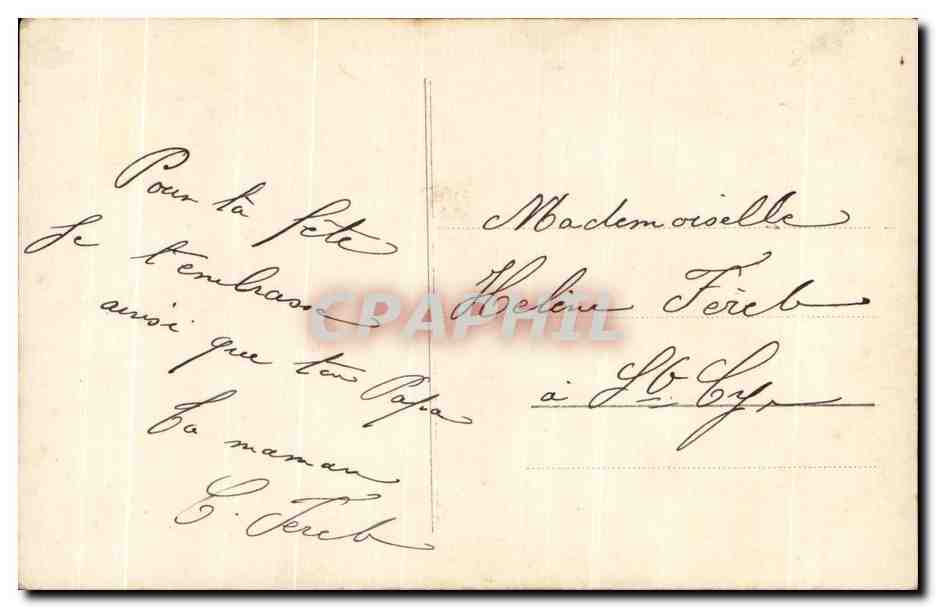 Pour ta fête
Je t'embrasse
ainsi que ton Papa
Ta maman
C. Féret
Mademoiselle
Helène Féret
à St. Cyr
CPAPHIL